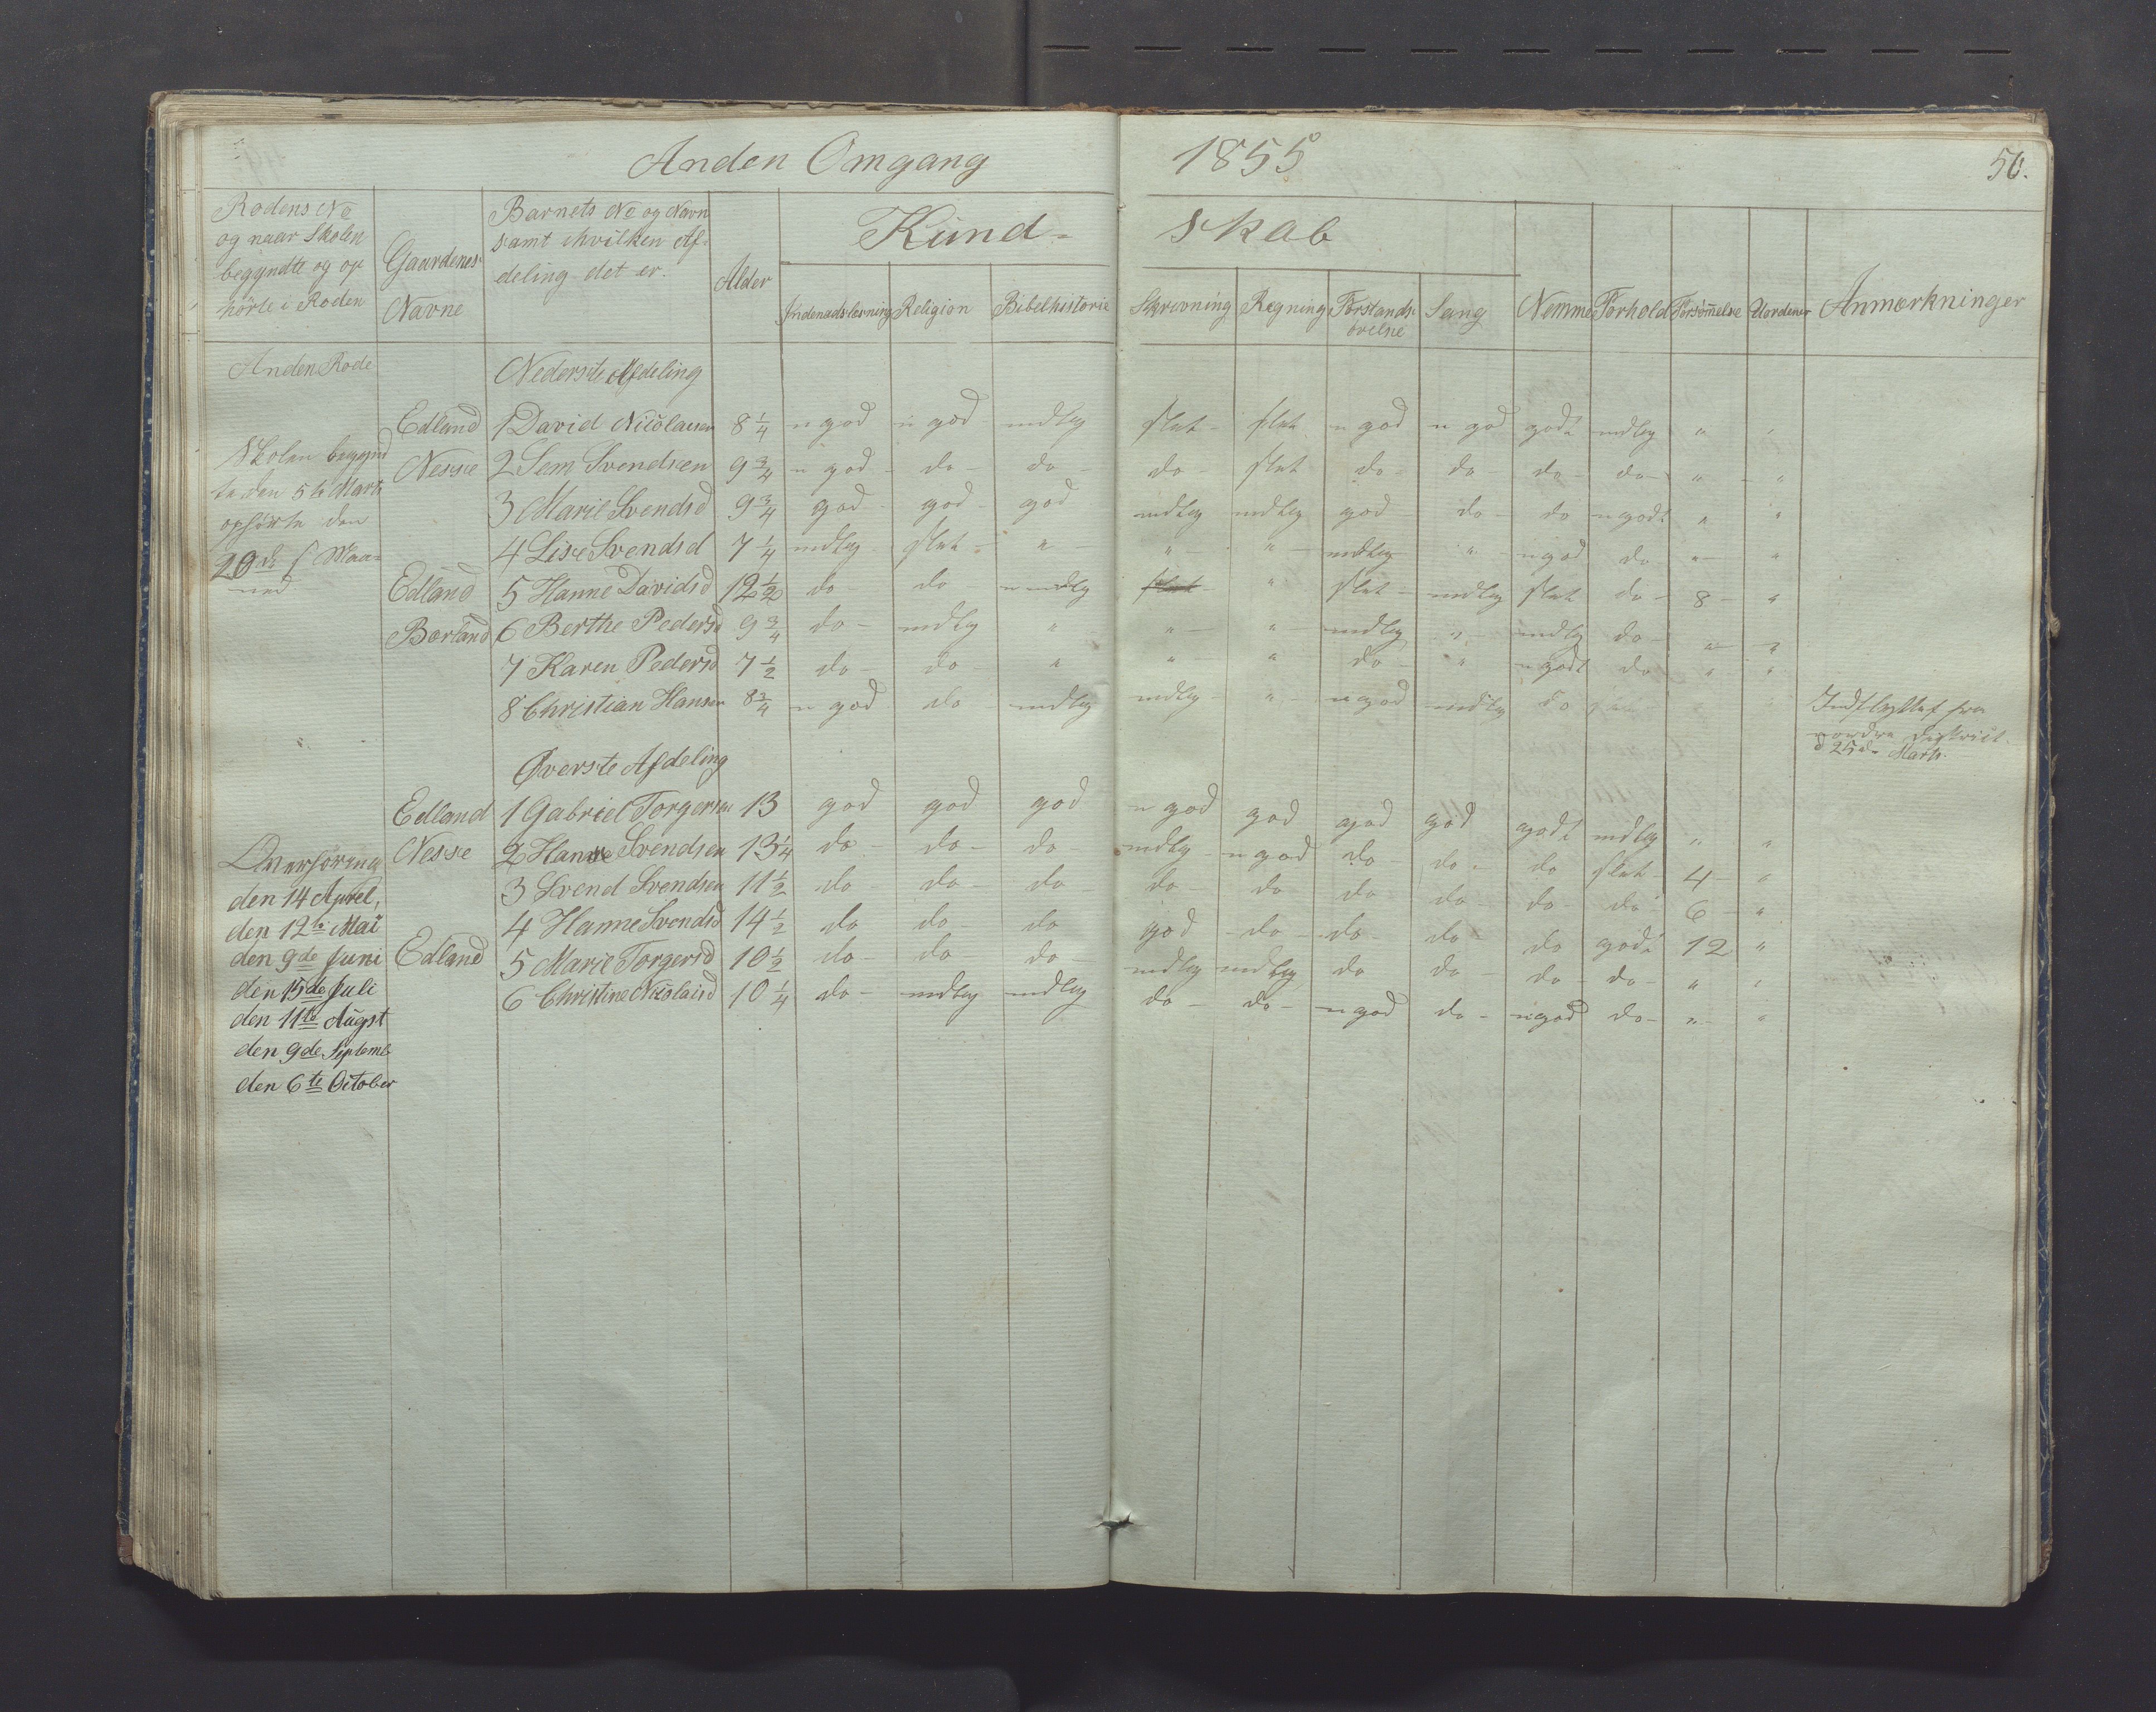 Anden Omgang 1855 50.
Rodens No og naar Skolen begyndte og ophörte i Roden
Gaardenes Navne
Barnets No og Navn samt ihvilken Afdeling det er.
Alder
Kund- skab
Indenadslæsning Religion Bibelhistorie Skrivning Regning Forstands övelse Sang Nemme Forhold Forsömmelse Uordener Anmærkninger
Anden Rode Nederste Afdeling
Edland 1 David Nicolaisen 8 1/4 n god n god mdlg slet slet n god n god godt mdlg " "
Skolen begynd
te den 5te Marts
ophörte den
20de s Maa=
ned
Nesse 2 Sem Svendsen 9 3/4 n god do do do slet do do do do " "
3 Marie Svendsd 9 3/4 god god god mdlg mdlg god do do n godt " "
4 Lise Svendsd 7 1/4 mdlg slet " " " mdlg " n god do " "
Edland 5 Hanne Davidsd 12 1/2 do do n mdlg slet " slet mdlg slet do 8 "
Borland 6 Berthe Pedersd 9 3/4 do mdlg " " " mdlg " mdlg do " "
7 Karen Pedersd 7 1/2 do do " " " do " n godt do " "
8 Christian Hansen 8 3/4 n god do mdlg mdlg " n god mdlg do
Indflyttet fra
nordre District
d 25de Marts.
Øverste Afdeling
Edland 1 Gabriel Torgersen 13 god god god n god god god god godt mdlg " "
Nesse 2 Hans Svendsen 13 1/4 do do do mdlg n god do do do slet 4 "
3 Svend Svendsen 11 1/2 do do do do do do do do do 6 "
4 Hanne Svendsd 14 1/2 do do do god do do do do godt 12 "
Edland 5 Marie Torgersd 10 1/2 do do do mdlg mdlg do do do do " "
6 Christine Nicolaisd 10 1/4 do mdlg mdlg do do n god do n god do " "
den 14 April,
den 12te Mai
den 9de Juni
den 15de Juli
den 11te Augst
den 9de Septemb
den 6te October